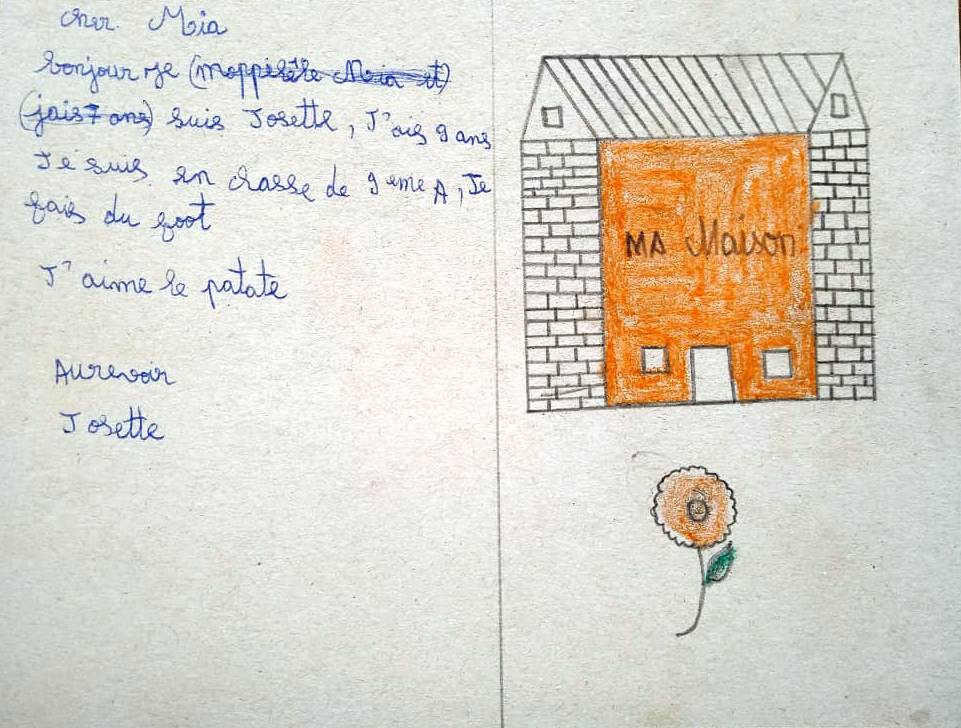 cher Mia
bonjour je (mappelele Meia et)
(jais 7 ans) suis Josette, J'ais 9 ans
Je suis en classe de 9 eme A, Je
fais du foot
J'aime le patate
Aurevoir
Josette
MA Maison